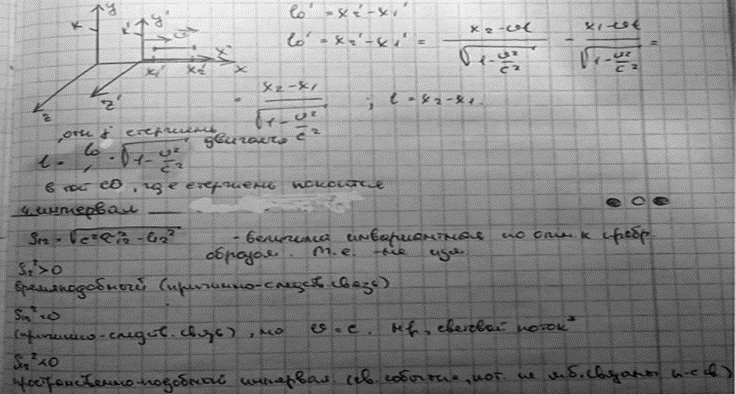 y y'
K K'
x₁' x₂' x' x
z z'
l₀' = x₂' - x₁'
l₀' = x₂' - x₁' = (x₂ - υt)/√(1 - υ²/c²) - (x₁ - υt)/√(1 - υ²/c²) =
= (x₂ - x₁)/√(1 - υ²/c²) ; l = x₂ - x₁.
стержень двигался
l = l₀ · √(1 - υ²/c²)
в той СО, где стержень покоится
4. интервал
S₁₂ = √(c²t₁₂² - l₁₂²) - величина инвариантная по отн к преобр
образов. т.е. не изм
S₁₂² > 0
времяподобный (причинно-следств. связь)
S₁₂² = 0
(причинно-следств. связь), но υ = c. Нр, световой поток
S₁₂² < 0
пространственно-подобный интервал (св. события, кот. не м.б. связаны п-с св)